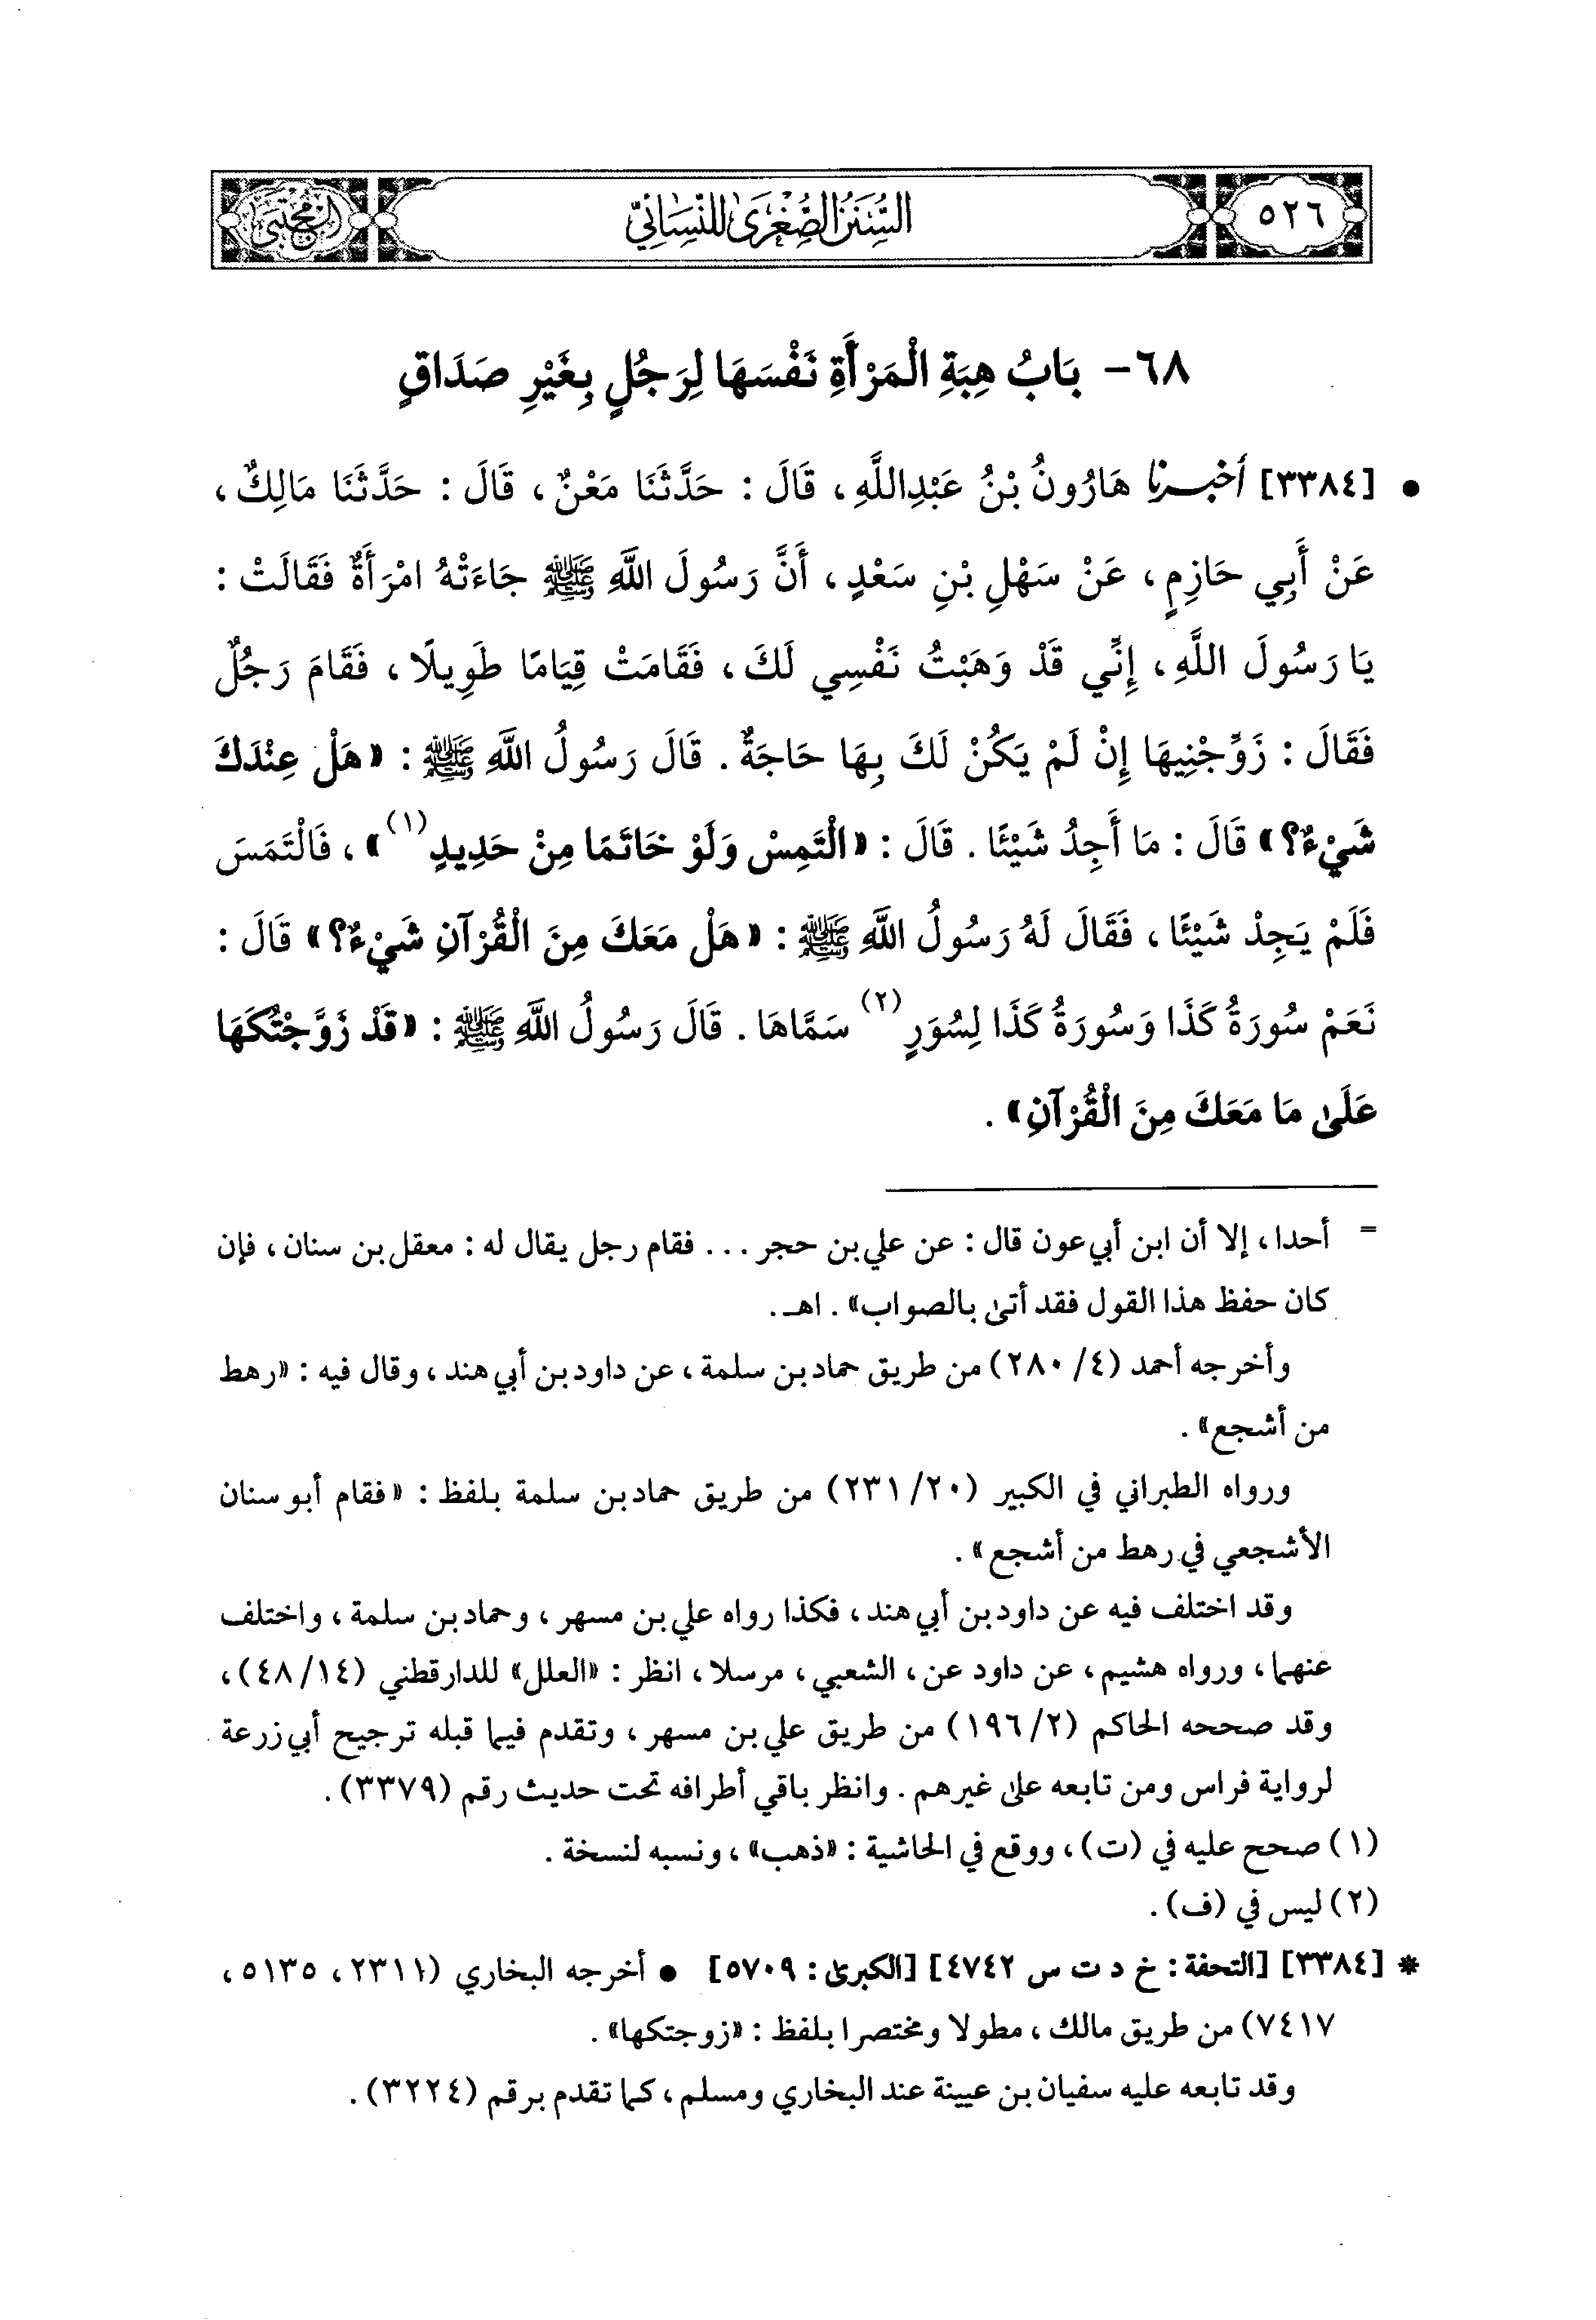 ٥٢٦
السُّنَنُ الصُّغْرَىٰ لِلنَّسَائِيِّ
المجتبى
٦٨- بَابُ هِبَةِ الْمَرْأَةِ نَفْسَهَا لِرَجُلٍ بِغَيْرِ صَدَاقٍ
• [٣٣٨٤] أخبرنا هَارُونُ بْنُ عَبْدِاللَّهِ، قَالَ: حَدَّثَنَا مَعْنٌ، قَالَ: حَدَّثَنَا مَالِكٌ،
عَنْ أَبِي حَازِمٍ، عَنْ سَهْلِ بْنِ سَعْدٍ، أَنَّ رَسُولَ اللَّهِ ﷺ جَاءَتْهُ امْرَأَةٌ فَقَالَتْ:
يَا رَسُولَ اللَّهِ، إِنِّي قَدْ وَهَبْتُ نَفْسِي لَكَ، فَقَامَتْ قِيَامًا طَوِيلًا، فَقَامَ رَجُلٌ
فَقَالَ: زَوِّجْنِيهَا إِنْ لَمْ يَكُنْ لَكَ بِهَا حَاجَةٌ. قَالَ رَسُولُ اللَّهِ ﷺ: «هَلْ عِنْدَكَ
شَيْءٌ؟» قَالَ: مَا أَجِدُ شَيْئًا. قَالَ: «الْتَمِسْ وَلَوْ خَاتَمًا مِنْ حَدِيدٍ(١)»، فَالْتَمَسَ
فَلَمْ يَجِدْ شَيْئًا، فَقَالَ لَهُ رَسُولُ اللَّهِ ﷺ: «هَلْ مَعَكَ مِنَ الْقُرْآنِ شَيْءٌ؟» قَالَ:
نَعَمْ سُورَةُ كَذَا وَسُورَةُ كَذَا لِسُوَرٍ(٢) سَمَّاهَا. قَالَ رَسُولُ اللَّهِ ﷺ: «قَدْ زَوَّجْتُكَهَا
عَلَىٰ مَا مَعَكَ مِنَ الْقُرْآنِ».
= أحدا، إلا أن ابن أبي عون قال: عن علي بن حجر ... فقام رجل يقال له: معقل بن سنان، فإن
كان حفظ هذا القول فقد أتى بالصواب». اهـ.
وأخرجه أحمد (٤/ ٢٨٠) من طريق حماد بن سلمة، عن داود بن أبي هند، وقال فيه: «رهط
من أشجع».
ورواه الطبراني في الكبير (٢٠/ ٢٣١) من طريق حماد بن سلمة بلفظ: «فقام أبو سنان
الأشجعي في رهط من أشجع».
وقد اختلف فيه عن داود بن أبي هند، فكذا رواه علي بن مسهر، وحماد بن سلمة، واختلف
عنهما، ورواه هشيم، عن داود عن، الشعبي، مرسلا، انظر: «العلل» للدارقطني (١٤/ ٤٨)،
وقد صححه الحاكم (٢/ ١٩٦) من طريق علي بن مسهر، وتقدم فيما قبله ترجيح أبي زرعة
لرواية فراس ومن تابعه على غيرهم. وانظر باقي أطرافه تحت حديث رقم (٣٣٧٩).
(١) صحح عليه في (ت)، ووقع في الحاشية: «ذهب»، ونسبه لنسخة.
(٢) ليس في (ف).
* [٣٣٨٤] [التحفة: خ د ت س ٤٧٤٢] [الكبرى: ٥٧٠٩] • أخرجه البخاري (٢٣١١، ٥١٣٥،
٧٤١٧) من طريق مالك، مطولا ومختصرا بلفظ: «زوجتكها».
وقد تابعه عليه سفيان بن عيينة عند البخاري ومسلم، كما تقدم برقم (٣٢٢٤).